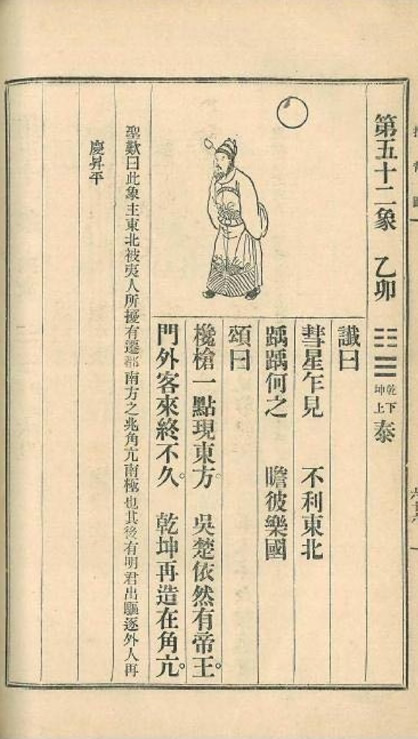 第五十二象 乙卯 ䷊ 乾下坤上 泰
讖曰
彗星乍見 不利東北
踽踽何之 瞻彼樂國
頌曰
欃槍一點現東方。吳楚依然有帝王。
門外客來終不久 乾坤再造在角亢。
聖歎曰此象主東北被夷人所擾有遷都南方之兆角亢南極也其後有明君出驅逐外人再
慶昇平